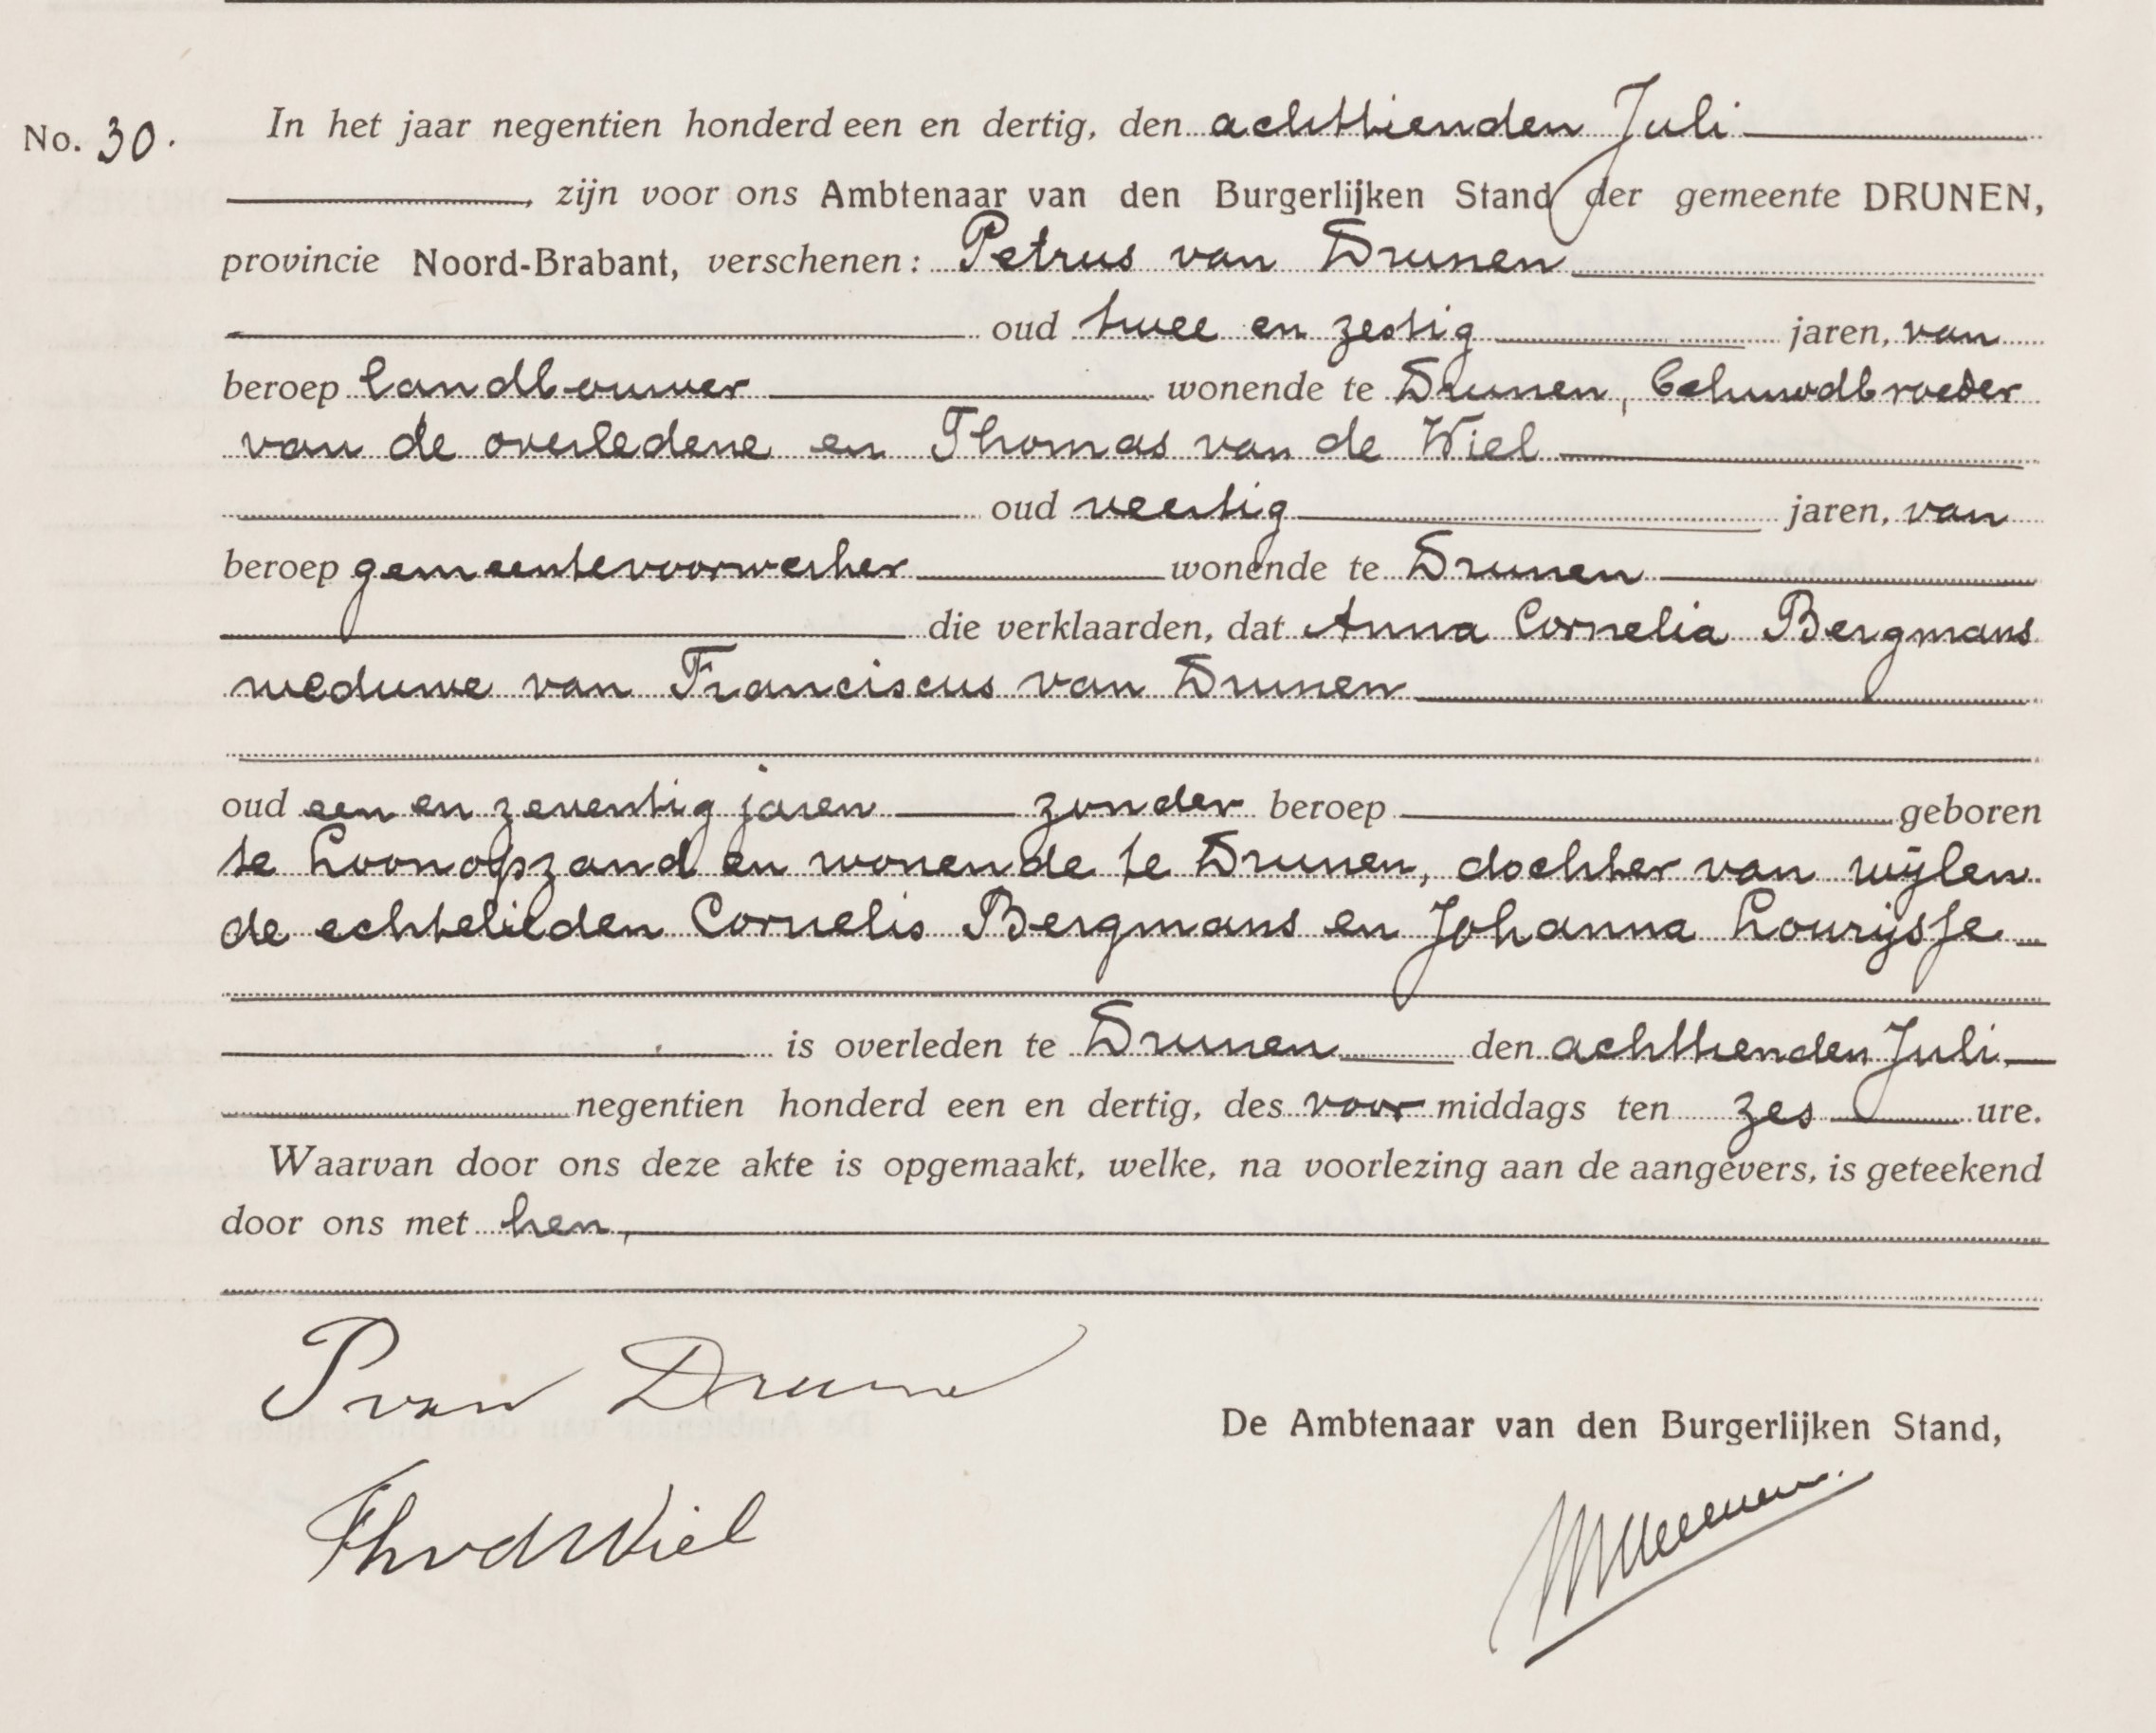 No. 30. In het jaar negentien honderd een en dertig, den achttienden Juli
, zijn voor ons Ambtenaar van den Burgerlijken Stand der gemeente DRUNEN,
provincie Noord-Brabant, verschenen: Petrus van Drunen
oud twee en zestig jaren, van
beroep landbouwer wonende te Drunen, behuwdbroeder
van de overledene en Thomas van de Wiel
oud veertig jaren, van
beroep gemeentevoorwerker wonende te Drunen
die verklaarden, dat Anna Cornelia Bergmans
weduwe van Franciscus van Drunen
oud een en zeventig jaren zonder beroep geboren
te Loonopzand en wonende te Drunen, dochter van wijlen
de echtelieden Cornelis Bergmans en Johanna Lourijsse
is overleden te Drunen den achttienden Juli
negentien honderd een en dertig, des voormiddags ten zes ure.
Waarvan door ons deze akte is opgemaakt, welke, na voorlezing aan de aangevers, is geteekend
door ons met hen,
P van Drunen
De Ambtenaar van den Burgerlijken Stand,
Th v d Wiel